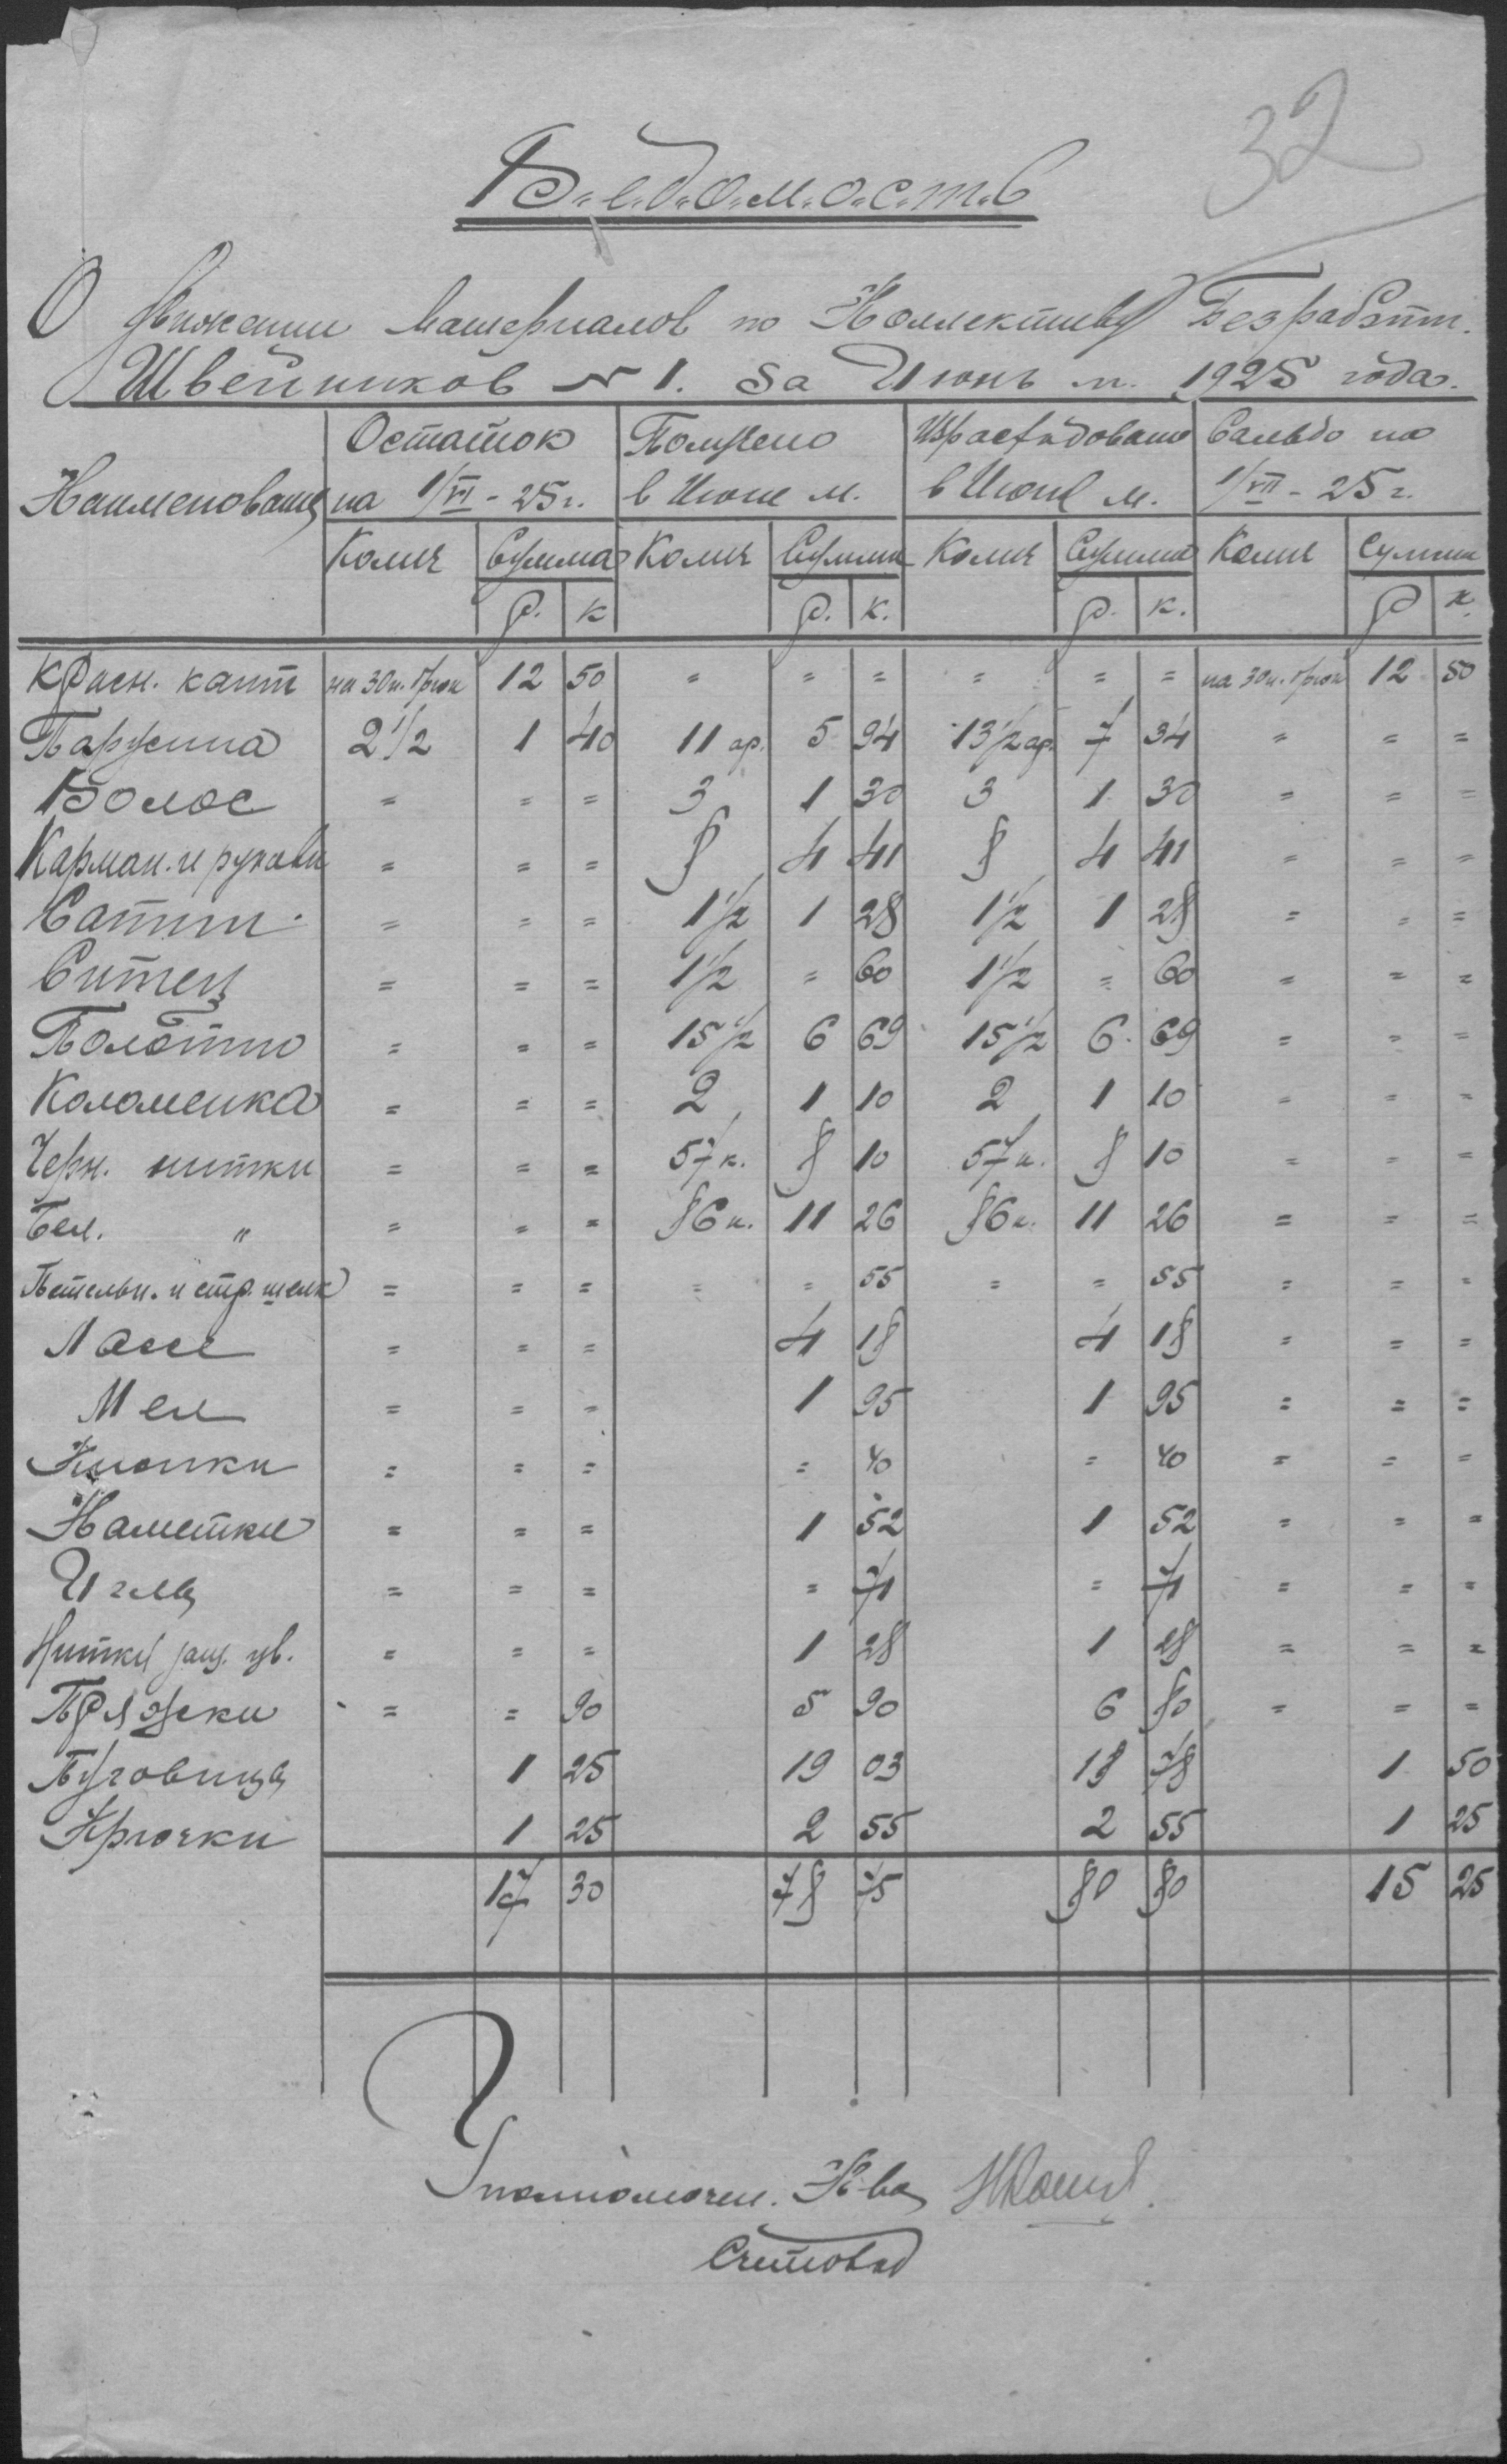 32
В.е.д.о.м.о.с.т.ь
О движении материалов по Коллективу Безработн.
Швейников № 1. За Июнь м. 1925 года.
Наименование | Остаток на 1/VI - 25 г. | Получено в Июне м. | Израсходовано в Июне м. | Сальдо на 1/VII - 25 г.
Колич | Сумма | Колич | Сумма | Колич | Сумма | Колич | Сумма
Р. | К | Р. | К. | Р. | К. | Р | К.
Красн. кант | на 30 п. брюк | 12 | 50 | = | = | = | = | = | = | на 30 п. брюк | 12 | 50
Парусина | 2 1/2 | 1 | 40 | 11 ар. | 5 | 94 | 13 1/2 ар. | 7 | 34 | = | = | =
Волос | = | = | = | 3 | 1 | 30 | 3 | 1 | 30 | = | = | =
Карман. и рукавн | = | = | = | 8 | 4 | 41 | 8 | 4 | 41 | = | = | =
Сатин | = | = | = | 1 1/2 | 1 | 28 | 1 1/2 | 1 | 28 | = | = | =
Ситец | = | = | = | 1 1/2 | = | 60 | 1 1/2 | = | 60 | = | = | =
Полотно | = | = | = | 15 1/2 | 6 | 69 | 15 1/2 | 6 | 69 | = | = | =
Коломенка | = | = | = | 2 | 1 | 10 | 2 | 1 | 10 | = | = | =
Черн. нитки | = | = | = | 57 к. | 8 | 10 | 57 к. | 8 | 10 | = | = | =
Бел. " | = | = | = | 86 к. | 11 | 26 | 86 к. | 11 | 26 | = | = | =
Петельн. и стр. шелк | = | = | = | = | = | 55 | = | = | 55 | = | = | =
Масс | = | = | = | 4 | 18 | 4 | 18 | = | = | =
Мел | = | = | = | 1 | 95 | 1 | 95 | = | = | =
Кнопки | = | = | = | = | 40 | = | 40 | = | = | =
Наметки | = | = | = | 1 | 52 | 1 | 52 | = | = | =
Иглы | = | = | = | = | 71 | = | 71 | = | = | =
Нитки защ. цв. | = | = | = | 1 | 28 | 1 | 28 | = | = | =
Пряжки | = | = | 90 | 5 | 90 | 6 | 80 | = | = | =
Пуговицы | 1 | 25 | 19 | 03 | 18 | 78 | 1 | 50
Крючки | 1 | 25 | 2 | 55 | 2 | 55 | 1 | 25
17 | 30 | 78 | 75 | 80 | 80 | 15 | 25
Уполномочен. К-ва
Счетовод